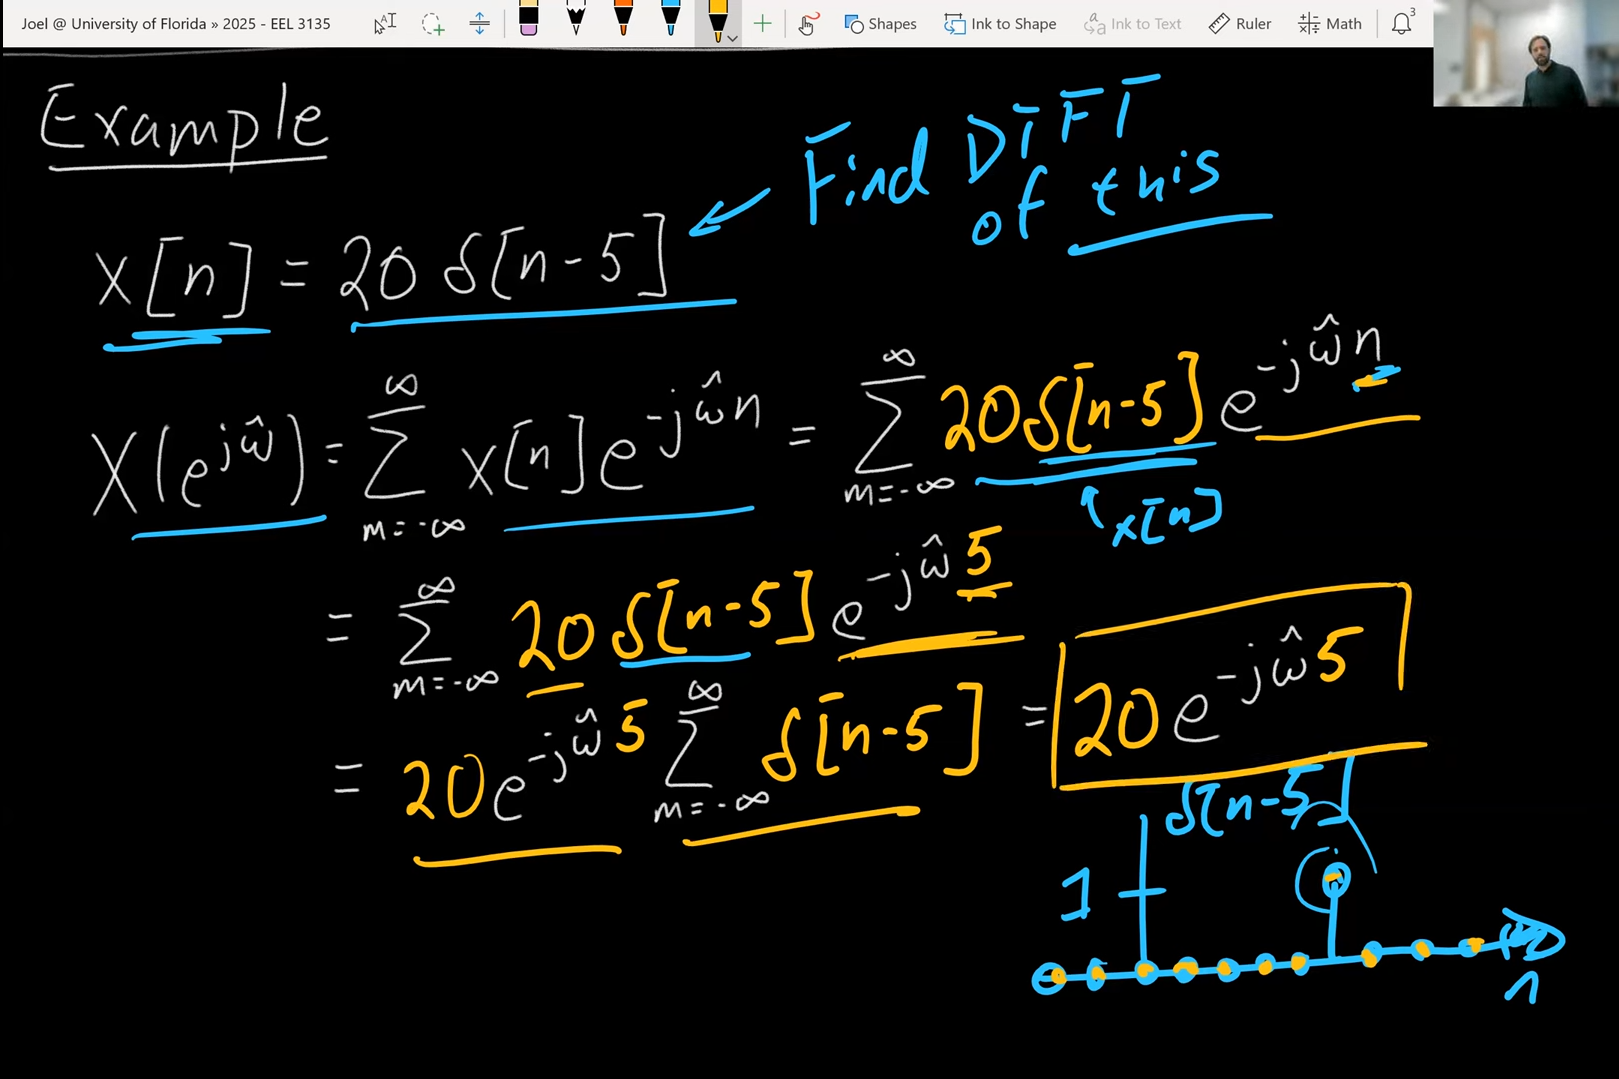 Joel @ University of Florida » 2025 - EEL 3135
Shapes Ink to Shape Ink to Text Ruler Math 3
Example
Find DTFT
of this
x[n] = 20 δ[n-5]
X(e^{jω̂}) = ∑_{m=-∞}^{∞} x[n] e^{-jω̂n} = ∑_{m=-∞}^{∞} 20δ[n-5] e^{-jω̂n}
x[n]
= ∑_{m=-∞}^{∞} 20 δ[n-5] e^{-jω̂5}
= 20e^{-jω̂5} ∑_{m=-∞}^{∞} δ[n-5] = 20e^{-jω̂5}
δ[n-5]
1
n